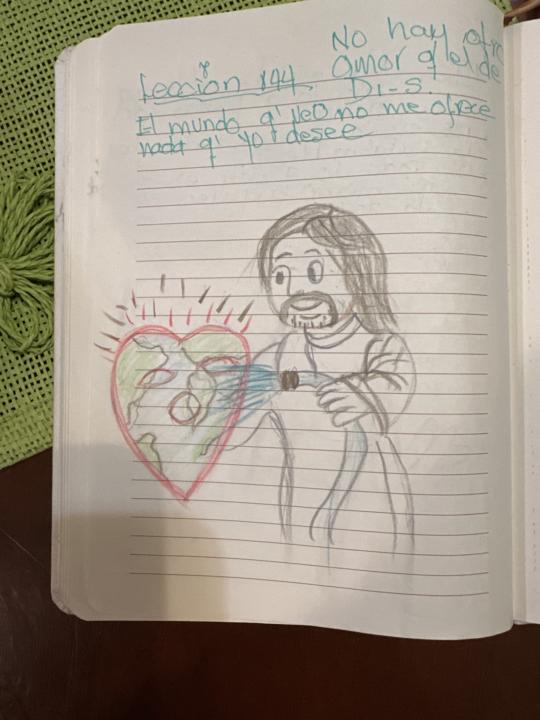 No hay otro
Amor q' el de
Di-s.
Lección 144.
El mundo q' veo no me ofrece
nada q' yo desee